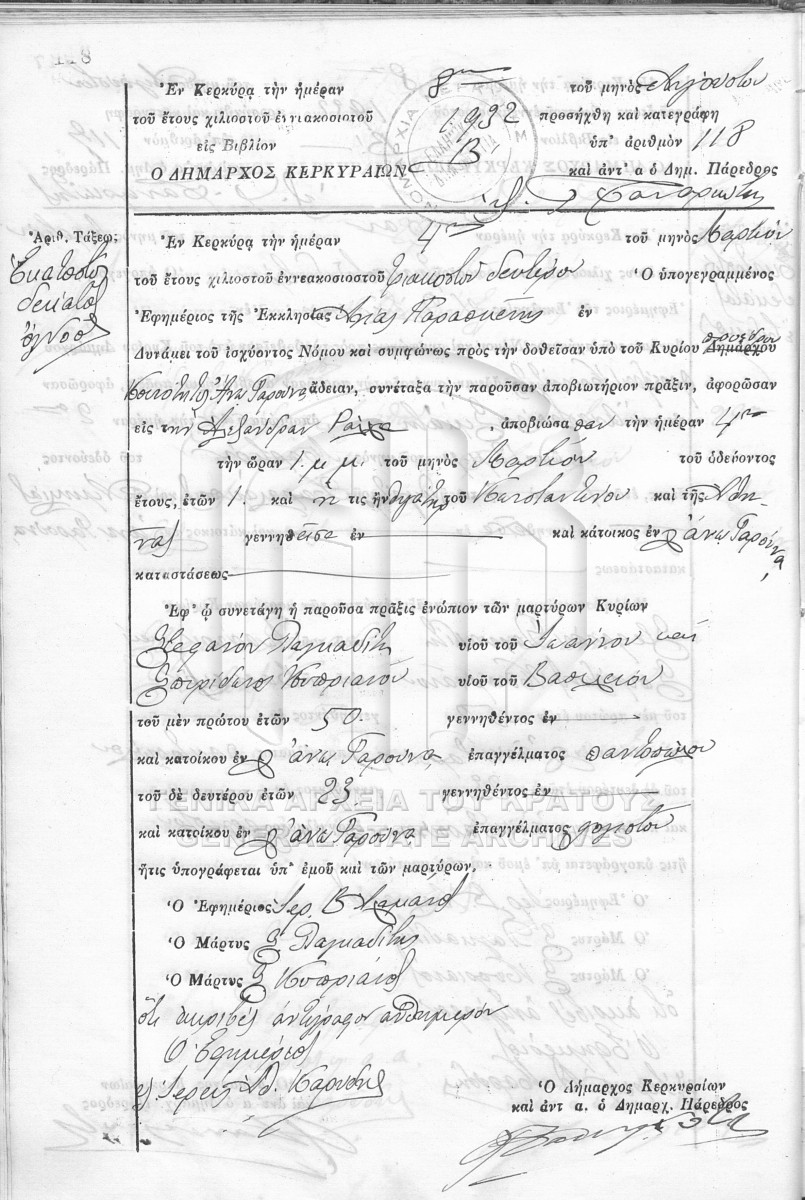 118
Ἐν Κερκύρᾳ τὴν ἡμέραν 8ην τοῦ μηνὸς Αὐγούστου
τοῦ ἔτους χιλιοστοῦ ἐννιακοσιοστοῦ 1932 προσήχθη καὶ κατεγράφη
εἰς Βιβλίον Β ὑπ' ἀριθμὸν 118
Ο ΔΗΜΑΡΧΟΣ ΚΕΡΚΥΡΑΙΩΝ καὶ ἀντ' α ὁ Δημ. Πάρεδρος
Ἀριθ. Τάξεως
Ἑκατοστὸν
δέκατον
ὄγδοον
Ἐν Κερκύρᾳ τὴν ἡμέραν 4ην τοῦ μηνὸς Μαρτίου
τοῦ ἔτους χιλιοστοῦ ἐννεακοσιοστοῦ τριακοστοῦ δευτέρου Ὁ ὑπογεγραμμένος
Ἐφημέριος τῆς Ἐκκλησίας Ἁγίας Παρασκευῆς ἐν
Δυνάμει τοῦ ἰσχύοντος Νόμου καὶ συμφώνως πρὸς τὴν δοθεῖσαν ὑπὸ τοῦ Κυρίου Δημάρχου προέδρου
Κοινότητος Ἄνω Γαρούνα ἄδειαν, συνέταξα τὴν παροῦσαν ἀποβιωτήριον πρᾶξιν, ἀφορῶσαν
εἰς τὴν Ἀλεξάνδραν , ἀποβιώσασαν τὴν ἡμέραν 4ην
τὴν ὥραν 1. μ. μ. τοῦ μηνὸς Μαρτίου τοῦ ὁδεύοντος
ἔτους, ἐτῶν 1. καὶ ἥτις ἦν θυγάτηρ τοῦ Κωνσταντίνου καὶ τῆς Ἀθη-
νᾶς γεννηθεῖσα ἐν καὶ κάτοικος ἐν Ἄνω Γαρούνα,
καταστάσεως
Ἐφ' ᾧ συνετάγη ἡ παροῦσα πρᾶξις ἐνώπιον τῶν μαρτύρων Κυρίων
Στεφάνου Παγιαδίτη υἱοῦ τοῦ Ἰωάννου καὶ
Σπυρίδωνος Κυπριανοῦ υἱοῦ τοῦ Βασιλείου
τοῦ μὲν πρώτου ἐτῶν 50. γεννηθέντος ἐν
καὶ κατοίκου ἐν Ἄνω Γαρούνα ἐπαγγέλματος παντοπώλου
τοῦ δὲ δευτέρου ἐτῶν 23. γεννηθέντος ἐν
ΓΕΝΙΚΑ ΑΡΧΕΙΑ ΤΟΥ ΚΡΑΤΟΥΣ
καὶ κατοίκου ἐν Ἄνω Γαρούνα ἐπαγγέλματος
GENERAL STATE ARCHIVES
ἥτις ὑπογράφεται ὑπ' ἐμοῦ καὶ τῶν μαρτύρων.
Ὁ Ἐφημέριος Ἱερ.
Ὁ Μάρτυς Σ Παγιαδίτης
Ὁ Μάρτυς Σ Κυπριανός
Ὅτι ἀκριβὲς ἀντίγραφον αὐθημερόν
Ὁ Ἐφημέριος
Ἱερεὺς
Ὁ Δήμαρχος Κερκυραίων
καὶ ἀντ α. ὁ Δημαρχ. Πάρεδρος